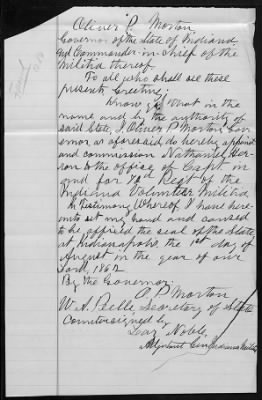 Oliver P. Morton
Governor of the State of Indiana
and Commander-in-chief of the
Militia thereof
To all who shall see these
presents Greeting:
Know ye that in the
name and by the authority of
said State, I, Oliver P Morton Gov
ernor as aforesaid do hereby appoint
and commission Nathaniel
to the office of Capt in
and for 73d Regt of the
Indiana Volunteer Militia
In Testimony Whereof I have here-
unto set my hand and caused
to be affixed the seal of the State
at Indianapolis, the 1st day of
August in the year of our
Lord, 1862
By the Governor
O P Morton
W. A. Peelle, Secretary of State
Countersigned by
Laz Noble
Adjutant Gen Indiana Militia